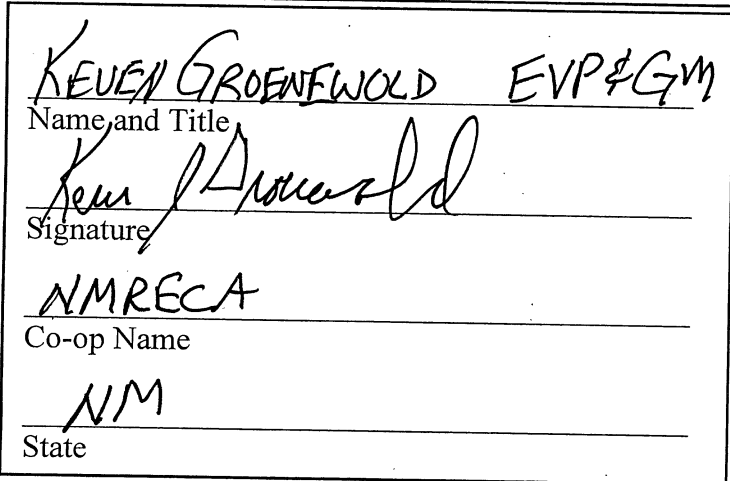 KEVEN GROENEWOLD EVP & GM
Name and Title
Signature
NMRECA
Co-op Name
NM
State